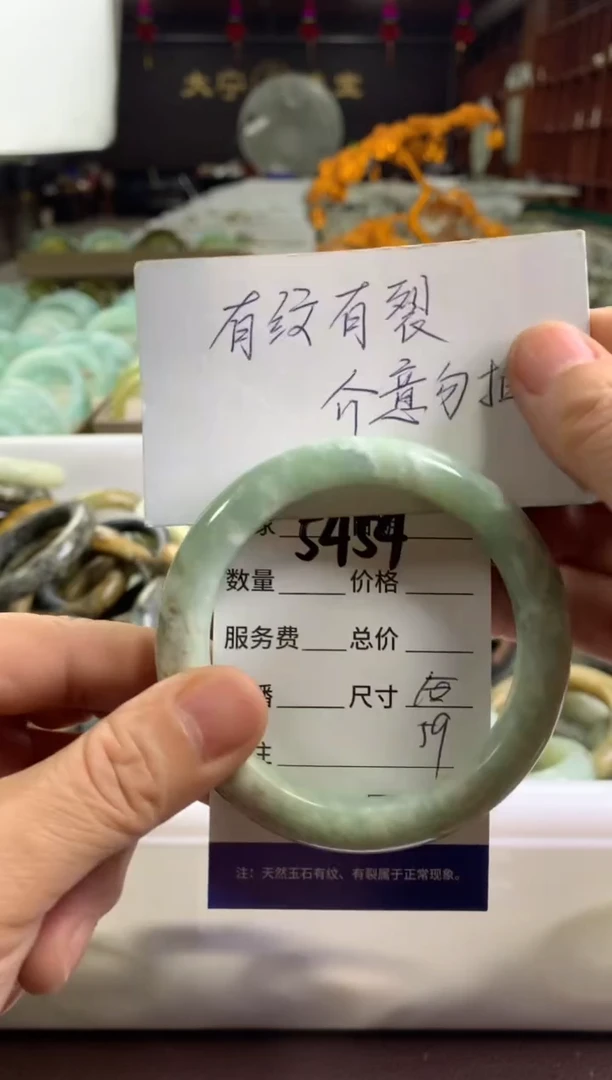 有纹有裂
介意勿拍
5454
数量 价格
服务费 总价
播 尺寸
59
主
注：天然玉石有纹、有裂属于正常现象。